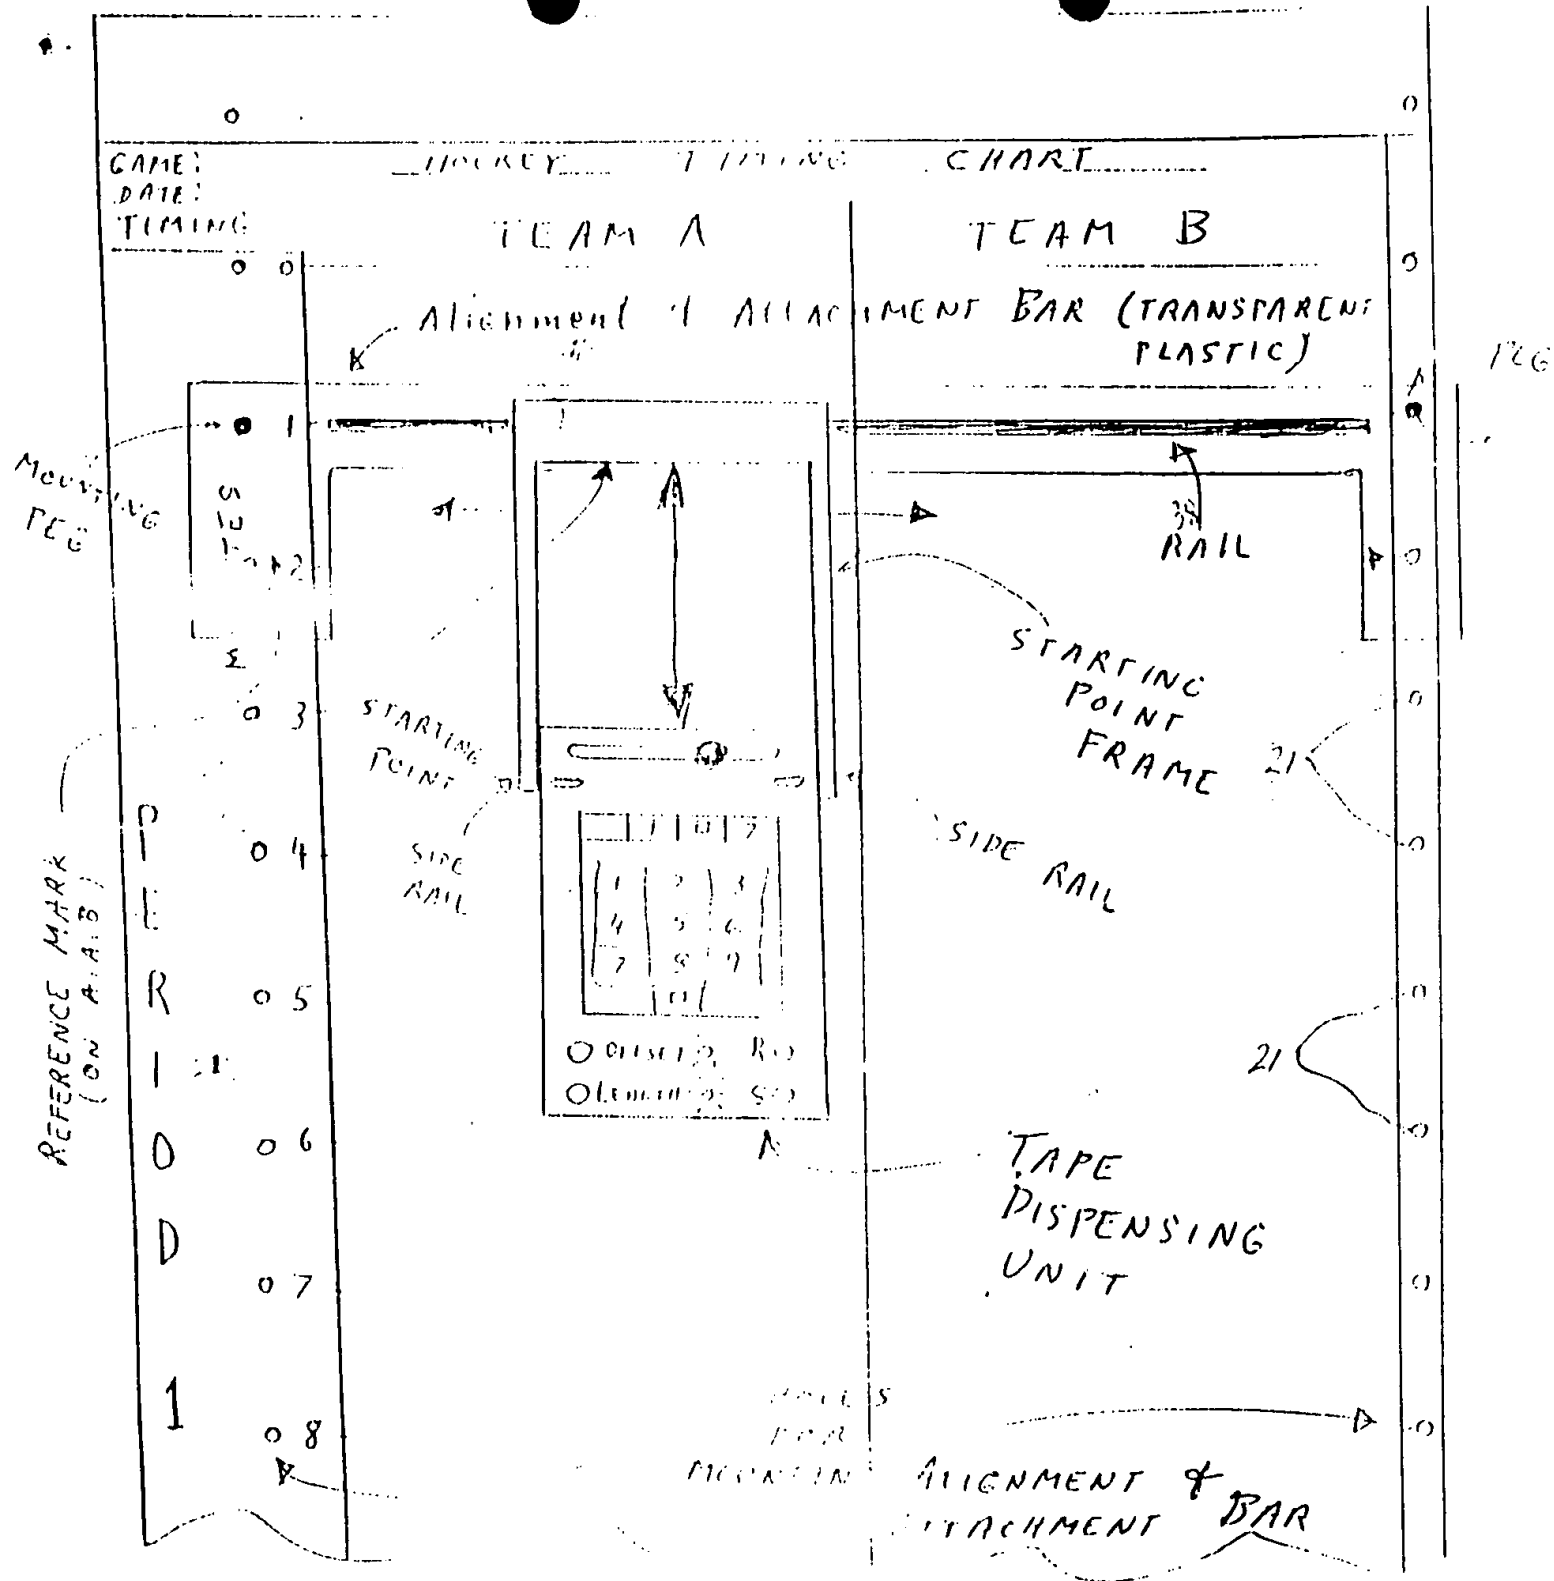 GAME:
DATE:
TIMING
HOCKEY TIMING CHART
TEAM A
TEAM B
Alignment & ATTACHMENT BAR (TRANSPARENT
PLASTIC)
PEG
1
MOUNTING
PEG
2
38
RAIL
STARTING
POINT
FRAME
3
STARTING
POINT
21
SIDE
RAIL
SIDE RAIL
4
REFERENCE MARK
(ON A.A.B)
PERIOD 1
1 2 3
4 5 6
7 8 9
5
OFFSET
LENGTH
21
6
TAPE
DISPENSING
UNIT
7
8
HOLES
FOR
MOUNTING ALIGNMENT &
ATTACHMENT BAR